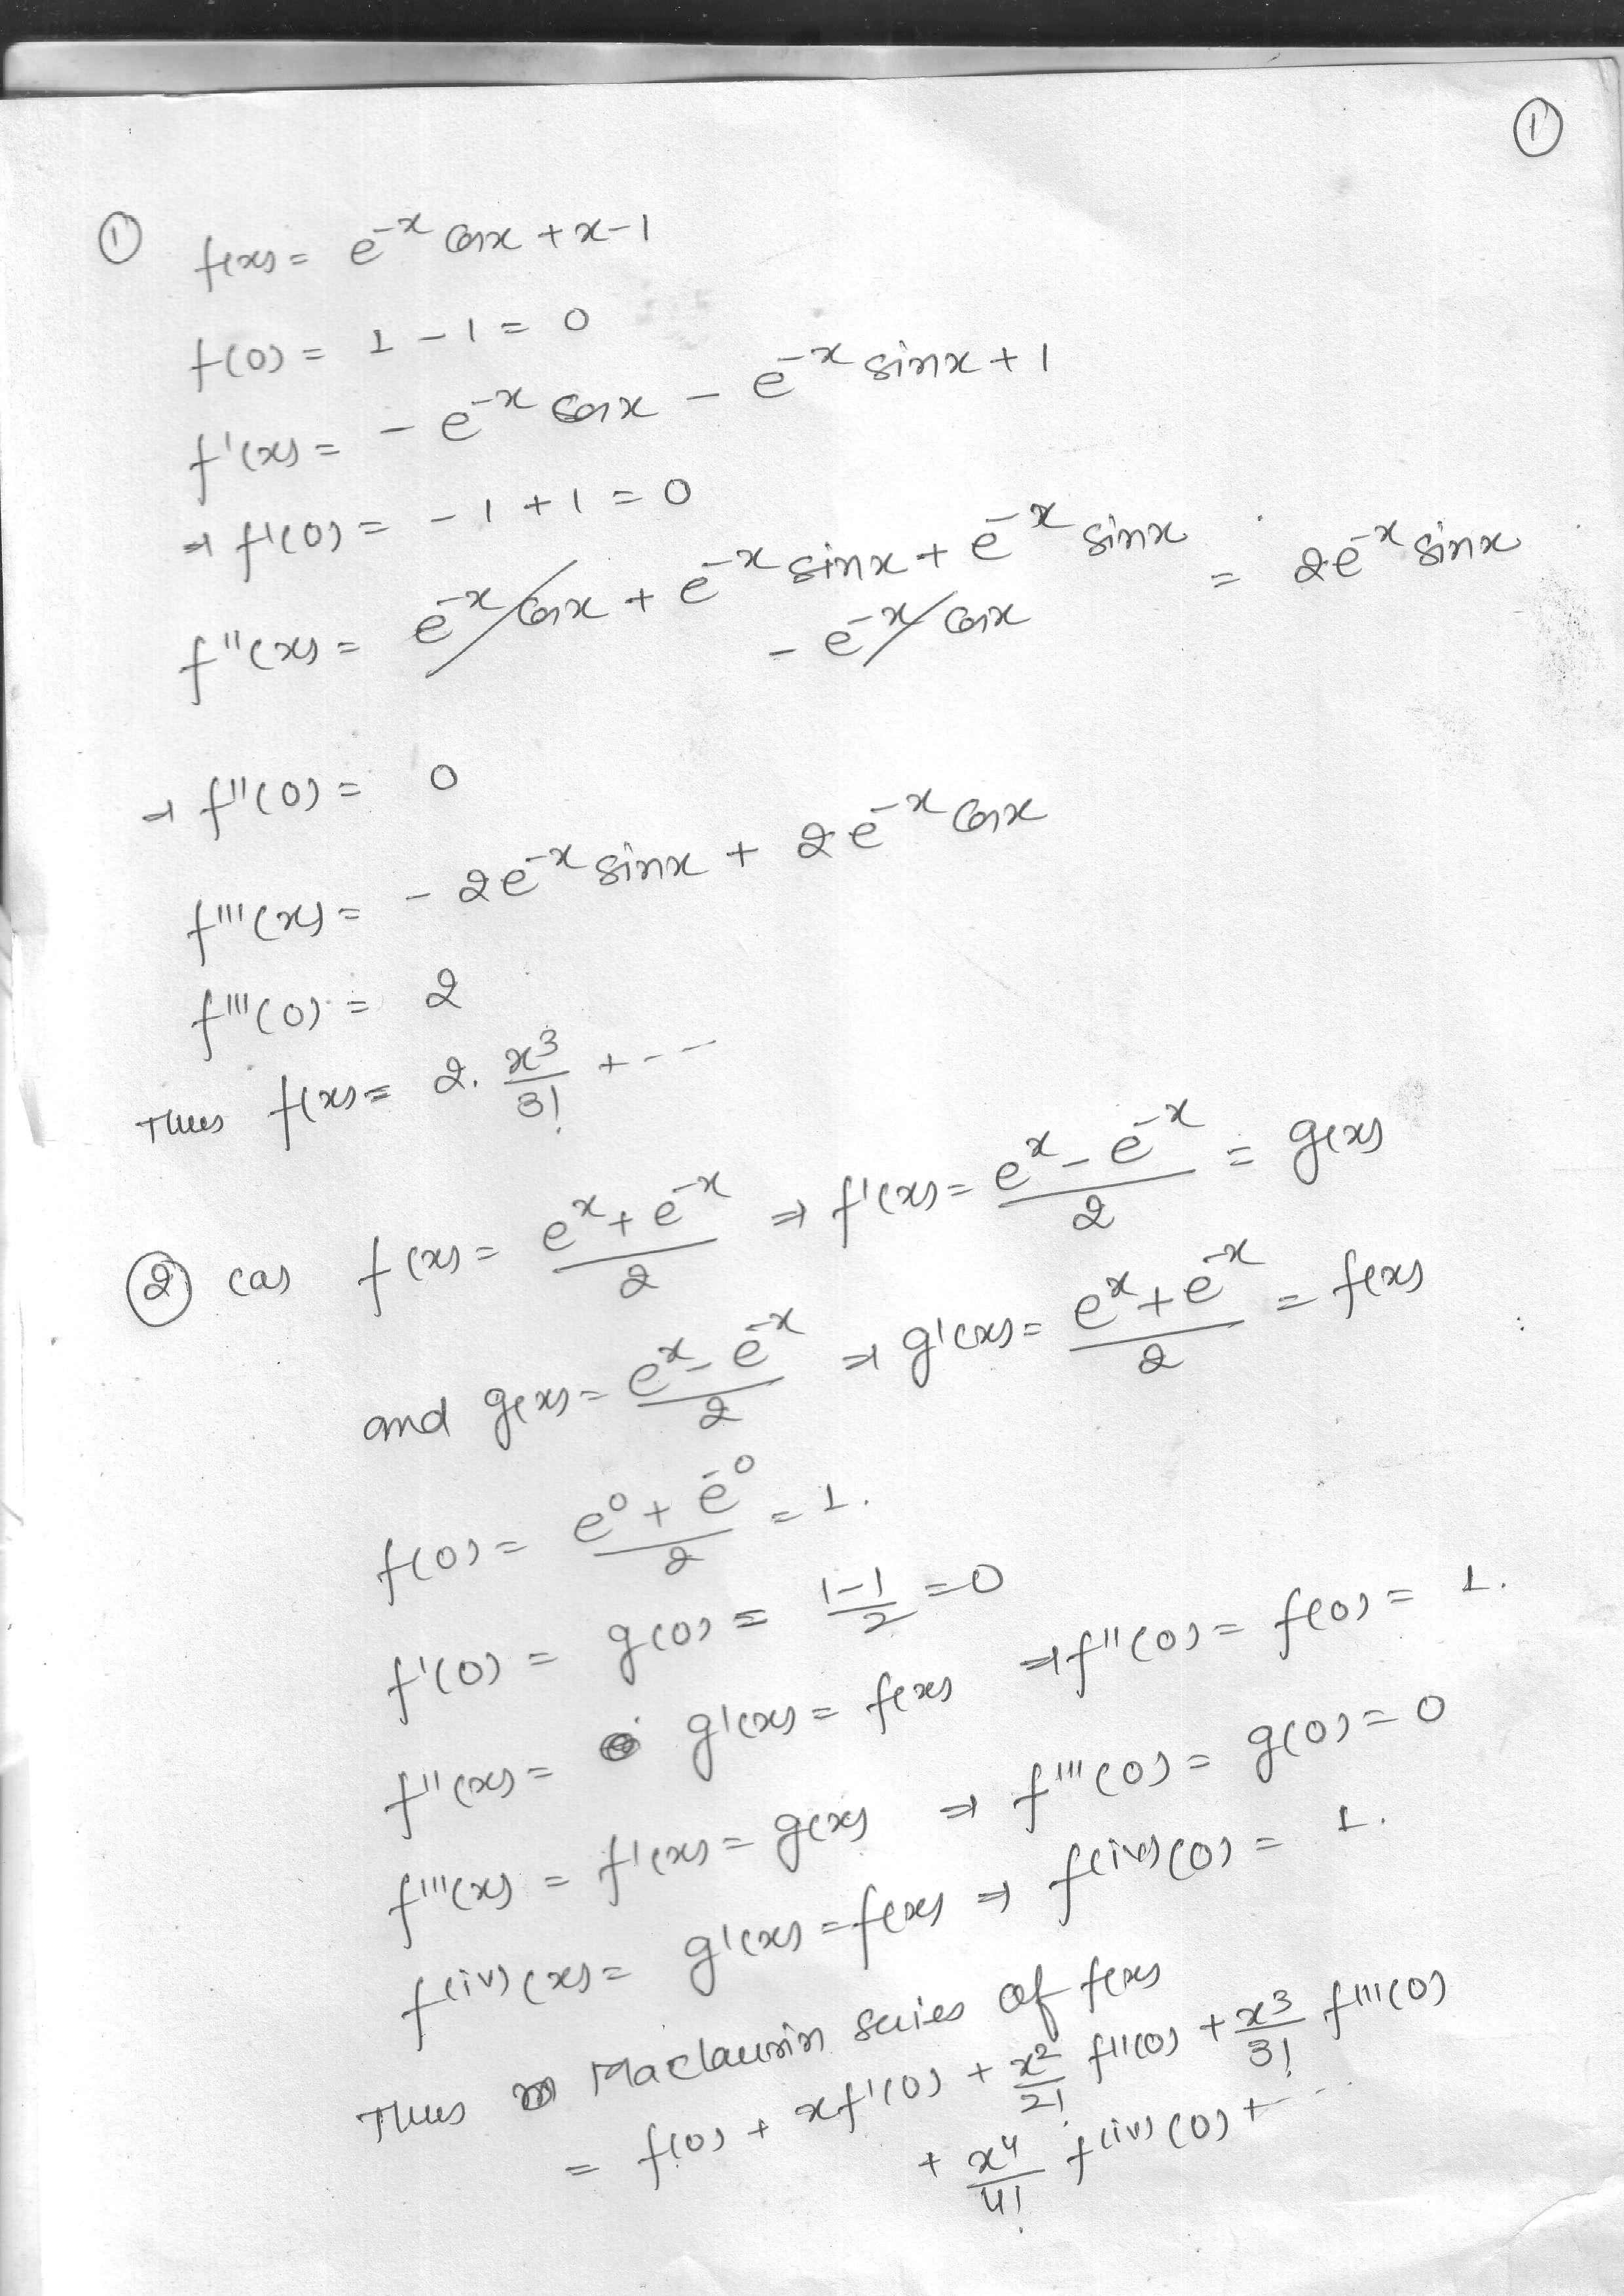 ①
① f(x) = e^{-x} cosx + x - 1
f(0) = 1 - 1 = 0
f'(x) = - e^{-x} cosx - e^{-x} sinx + 1
⇒ f'(0) = - 1 + 1 = 0
f''(x) = e^{-x} cosx + e^{-x} sinx + e^{-x} sinx = 2e^{-x} sinx
- e^{-x} cosx
⇒ f''(0) = 0
f'''(x) = - 2e^{-x} sinx + 2e^{-x} cosx
f'''(0) = 2
Thus f(x) = 2. x^3/3! + ---
② (a) f(x) = (e^x + e^{-x})/2 ⇒ f'(x) = (e^x - e^{-x})/2 = g(x)
and g(x) = (e^x - e^{-x})/2 ⇒ g'(x) = (e^x + e^{-x})/2 = f(x)
f(0) = (e^0 + e^{-0})/2 = 1.
f'(0) = g(0) = (1-1)/2 = 0
f''(x) = g'(x) = f(x) ⇒ f''(0) = f(0) = 1.
f'''(x) = f'(x) = g(x) ⇒ f'''(0) = g(0) = 0
f^{(iv)}(x) = g'(x) = f(x) ⇒ f^{(iv)}(0) = 1.
Thus Maclaurin series of f(x)
= f(0) + xf'(0) + x^2/2! f''(0) + x^3/3! f'''(0)
+ x^4/4! f^{(iv)}(0) + ---